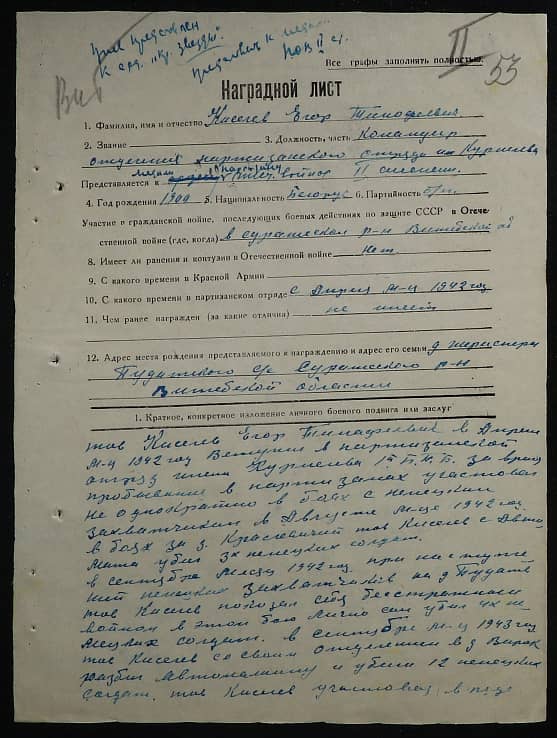 был представлен
к орд. "Кр. Звезды"
представлен к медали
ПОВ II ст.
Вит
II
53
Все графы заполнять полностью.
Наградной лист
1. Фамилия, имя и отчество Киселев Егор Тимофеевич
2. Звание 3. Должность, часть Командир
отделения партизанского отряда им Курмелева
Представляется к медали партизану Отеч. войны II степени.
4. Год рождения 1900 5. Национальность Белорус 6. Партийность б/п
Участие в гражданской войне, последующих боевых действиях по защите СССР в Отече-
ственной войне (где, когда) в Суражском р-н Витебской об
8. Имеет ли ранения и контузии в Отечественной войне нет
9. С какого времени в Красной Армии
10. С какого времени в партизанском отряде с Апреля м-ц 1942 год
11. Чем ранее награжден (за какие отличия) не имеет
12. Адрес места рождения представляемого к награждению и адрес его семьи д
Пудатского с/с Суражского р-н
Витебской области
1. Краткое, конкретное изложение личного боевого подвига или заслуг
тов Киселев Егор Тимофеевич в Апреле
м-ц 1942 год Вступил в партизанской
отряд имени Курмелева 1й Б.П.Б. за время
пребывание в партизанах участвовал
не однократно в боях с немецкими
захватчиками в Августе м-це 1942 год
в боях за д. тов Киселев с Авто-
мата убил 3х немецких солдат.
в сентябре месяце 1942 год при наступле
нии немецких захватчиков на д Пудоть
тов Киселев показал себя бесстрашным
войном в этом бою лично сам убил 4х не
мецких солдат. в сентябре м-ц 1943 год
тов Киселев со своим отделением в д
разбил автомашину и убили 12 немецких
солдат. тов Киселев участвовал в